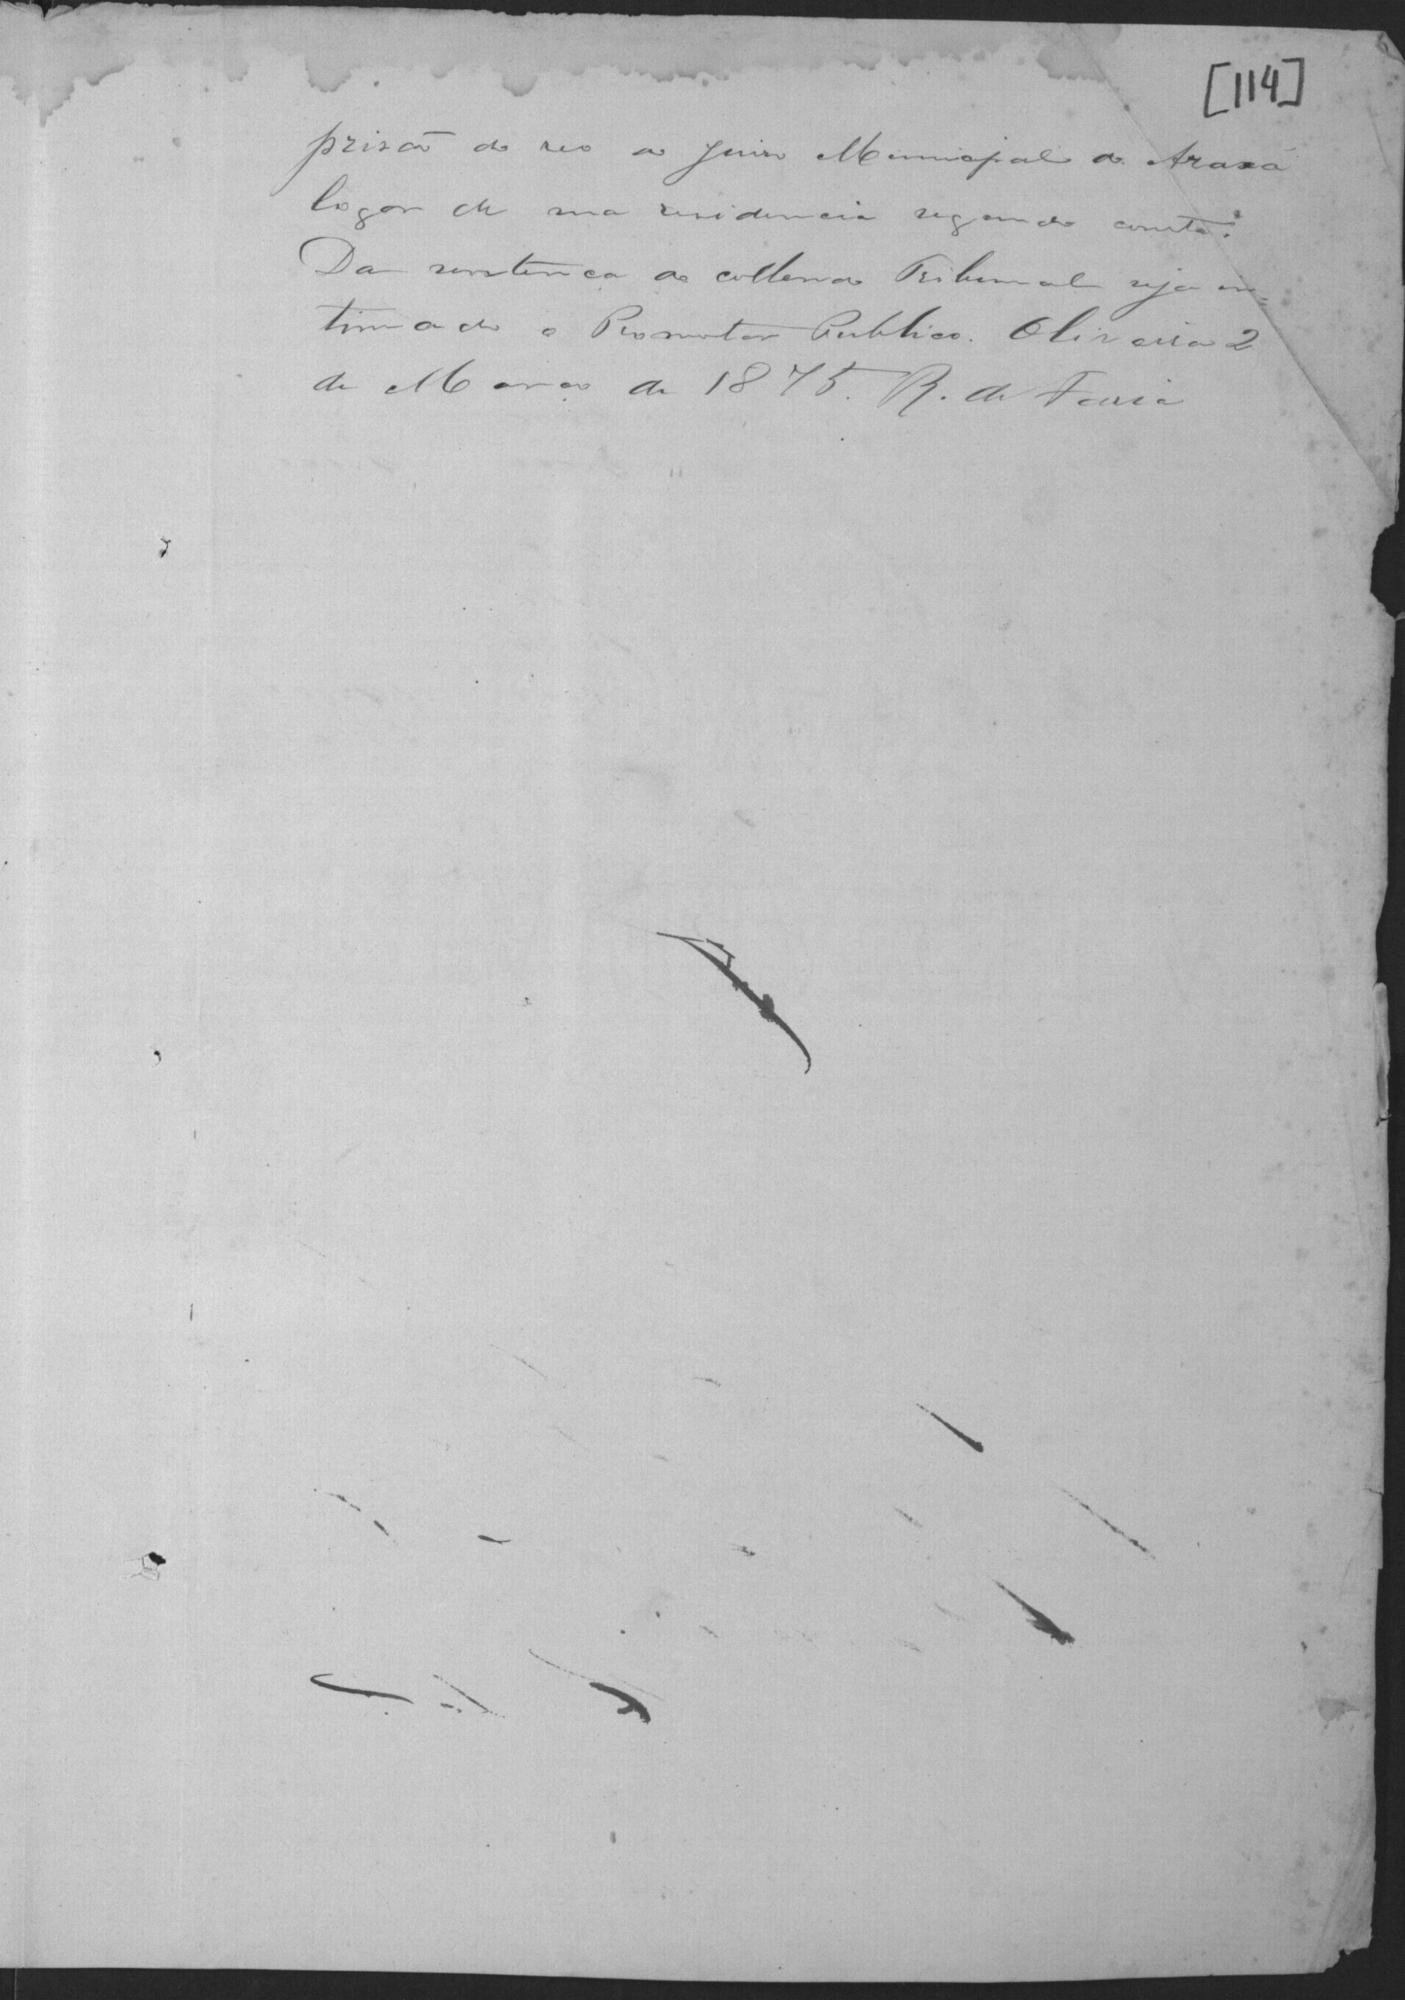 [114]
prisão do reo ao Juiso Municipal do Araxá
logar de sua residencia segundo consta.
Da sentença do collendo Tribunal seja in=
timado o Promotor Publico. Oliveira 2
de Março de 1875. R. de Faria